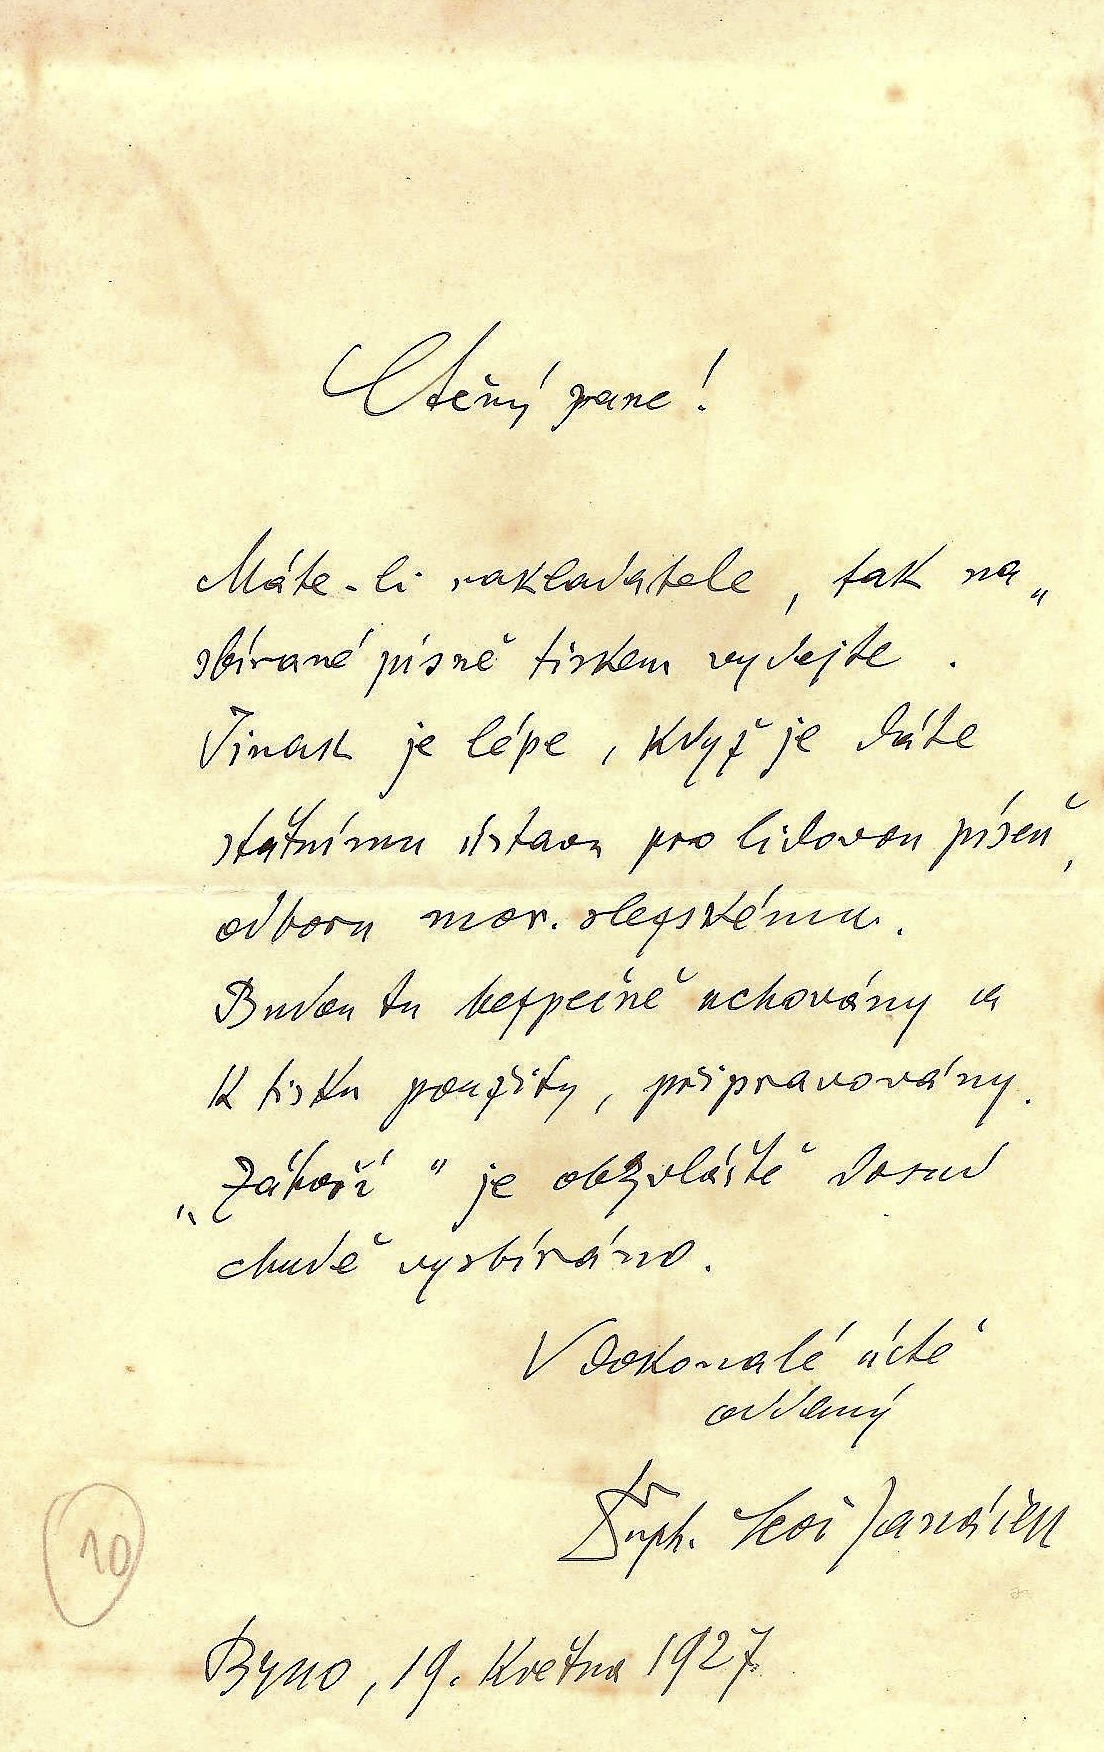 Ctěný pane!
Máte-li nakladatele, tak na„
sbírané písně tiskem vydejte.
Jinak je lépe, když je dáte
státnímu ústavu pro lidovou píseň,
odboru mor. slezskému.
Budou tu bezpečně uchovány a
k tisku použity, připravovány.
„Záhoří“ je obzvláště dosud
chudě vysbíráno.
V dokonalé úctě
oddaný
Drph. Leoš Janáček
10
Brno, 19. května 1927